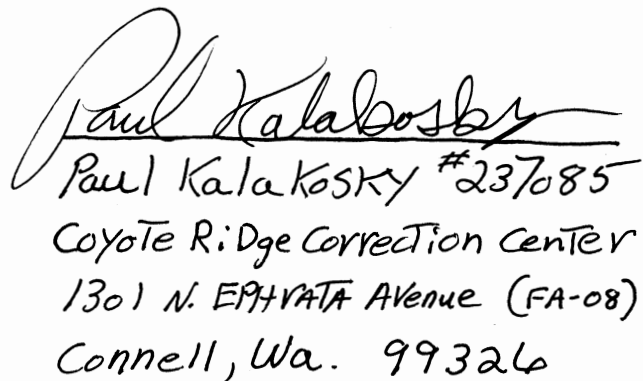 Paul Kalakosky
Paul Kalakosky #237085
Coyote Ridge Correction Center
1301 N. EPHRATA Avenue (FA-08)
Connell, Wa. 99326